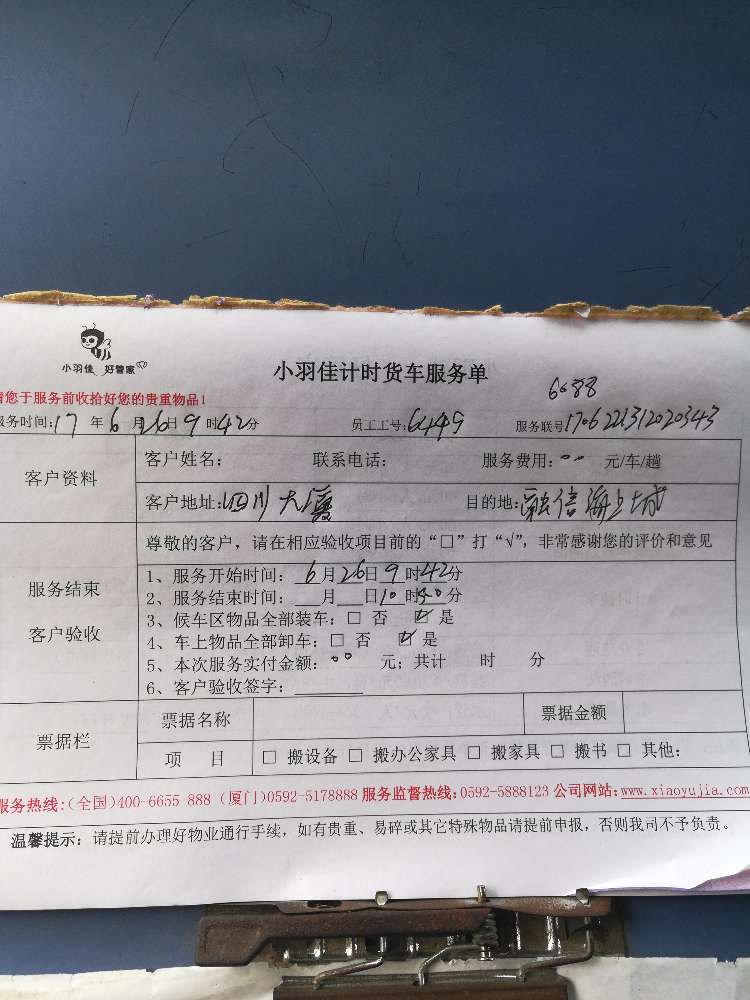 小羽佳 好管家
小羽佳计时货车服务单
6688
请您于服务前收拾好您的贵重物品!
服务时间:17 年 6 月 26 日 9 时 42 分 员工工号:6449 服务联号 1706221312020343
客户资料
客户姓名: 联系电话: 服务费用: 元/车/趟
客户地址:四川大厦 目的地:融信海上城
尊敬的客户，请在相应验收项目前的“□”打“√”，非常感谢您的评价和意见
服务结束
客户验收
1、服务开始时间: 6 月 26 日 9 时 42 分
2、服务结束时间: 月 日 10 时 40 分
3、候车区物品全部装车:□ 否 ☑ 是
4、车上物品全部卸车:□ 否 ☑ 是
5、本次服务实付金额: 元; 共计 时 分
6、客户验收签字:
票据栏
票据名称 票据金额
项 目 □ 搬设备 □ 搬办公家具 □ 搬家具 □ 搬书 □ 其他:
服务热线:(全国)400-6655 888 (厦门)0592-5178888 服务监督热线:0592-5888123 公司网站:www.xiaoyujia.com
温馨提示: 请提前办理好物业通行手续，如有贵重、易碎或其它特殊物品请提前申报，否则我司不予负责。